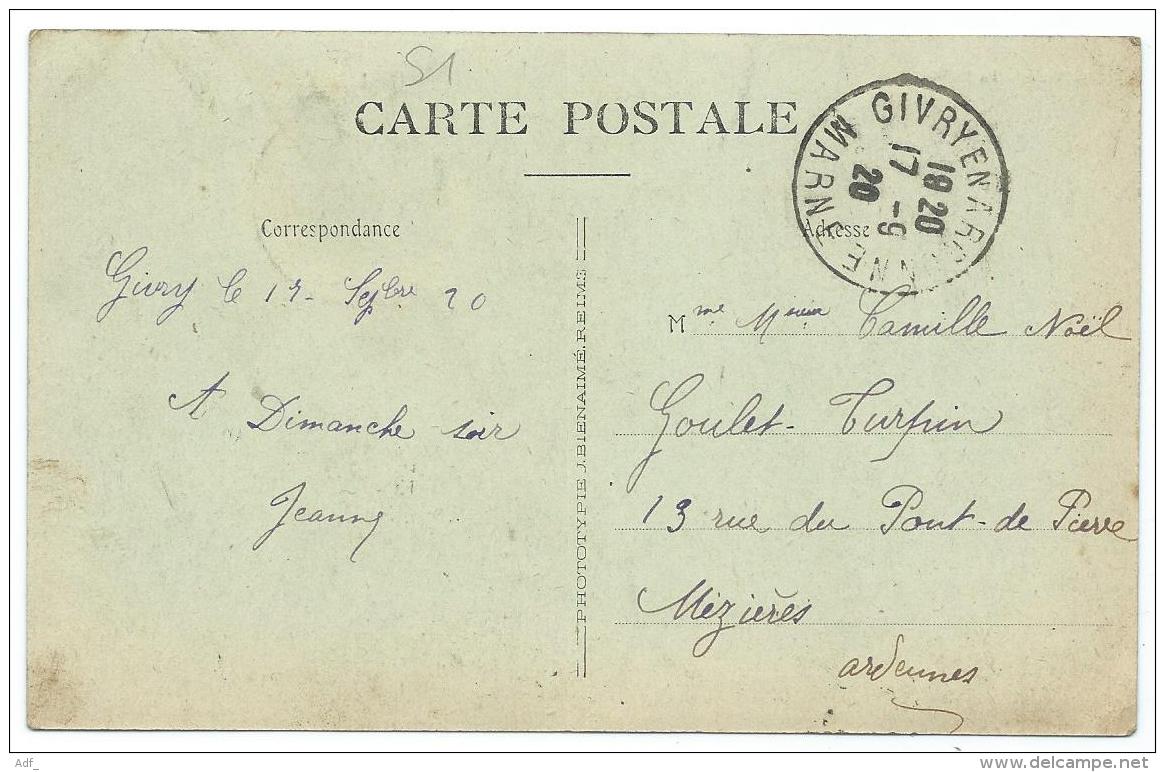 51
CARTE POSTALE
GIVRY EN ARGONNE
MARNE
19 20
17 -9
20
Correspondance
Adresse
Givry le 17 - Sepbre 20
A Dimanche soir
Jeanne
PHOTOTYPIE J. BIENAIMÉ. REIMS
Mme Camille Noël
Goulet - Turpin
13 rue du Pont - de Pierre
Mézières
ardennes
Adf_
www.delcampe.net